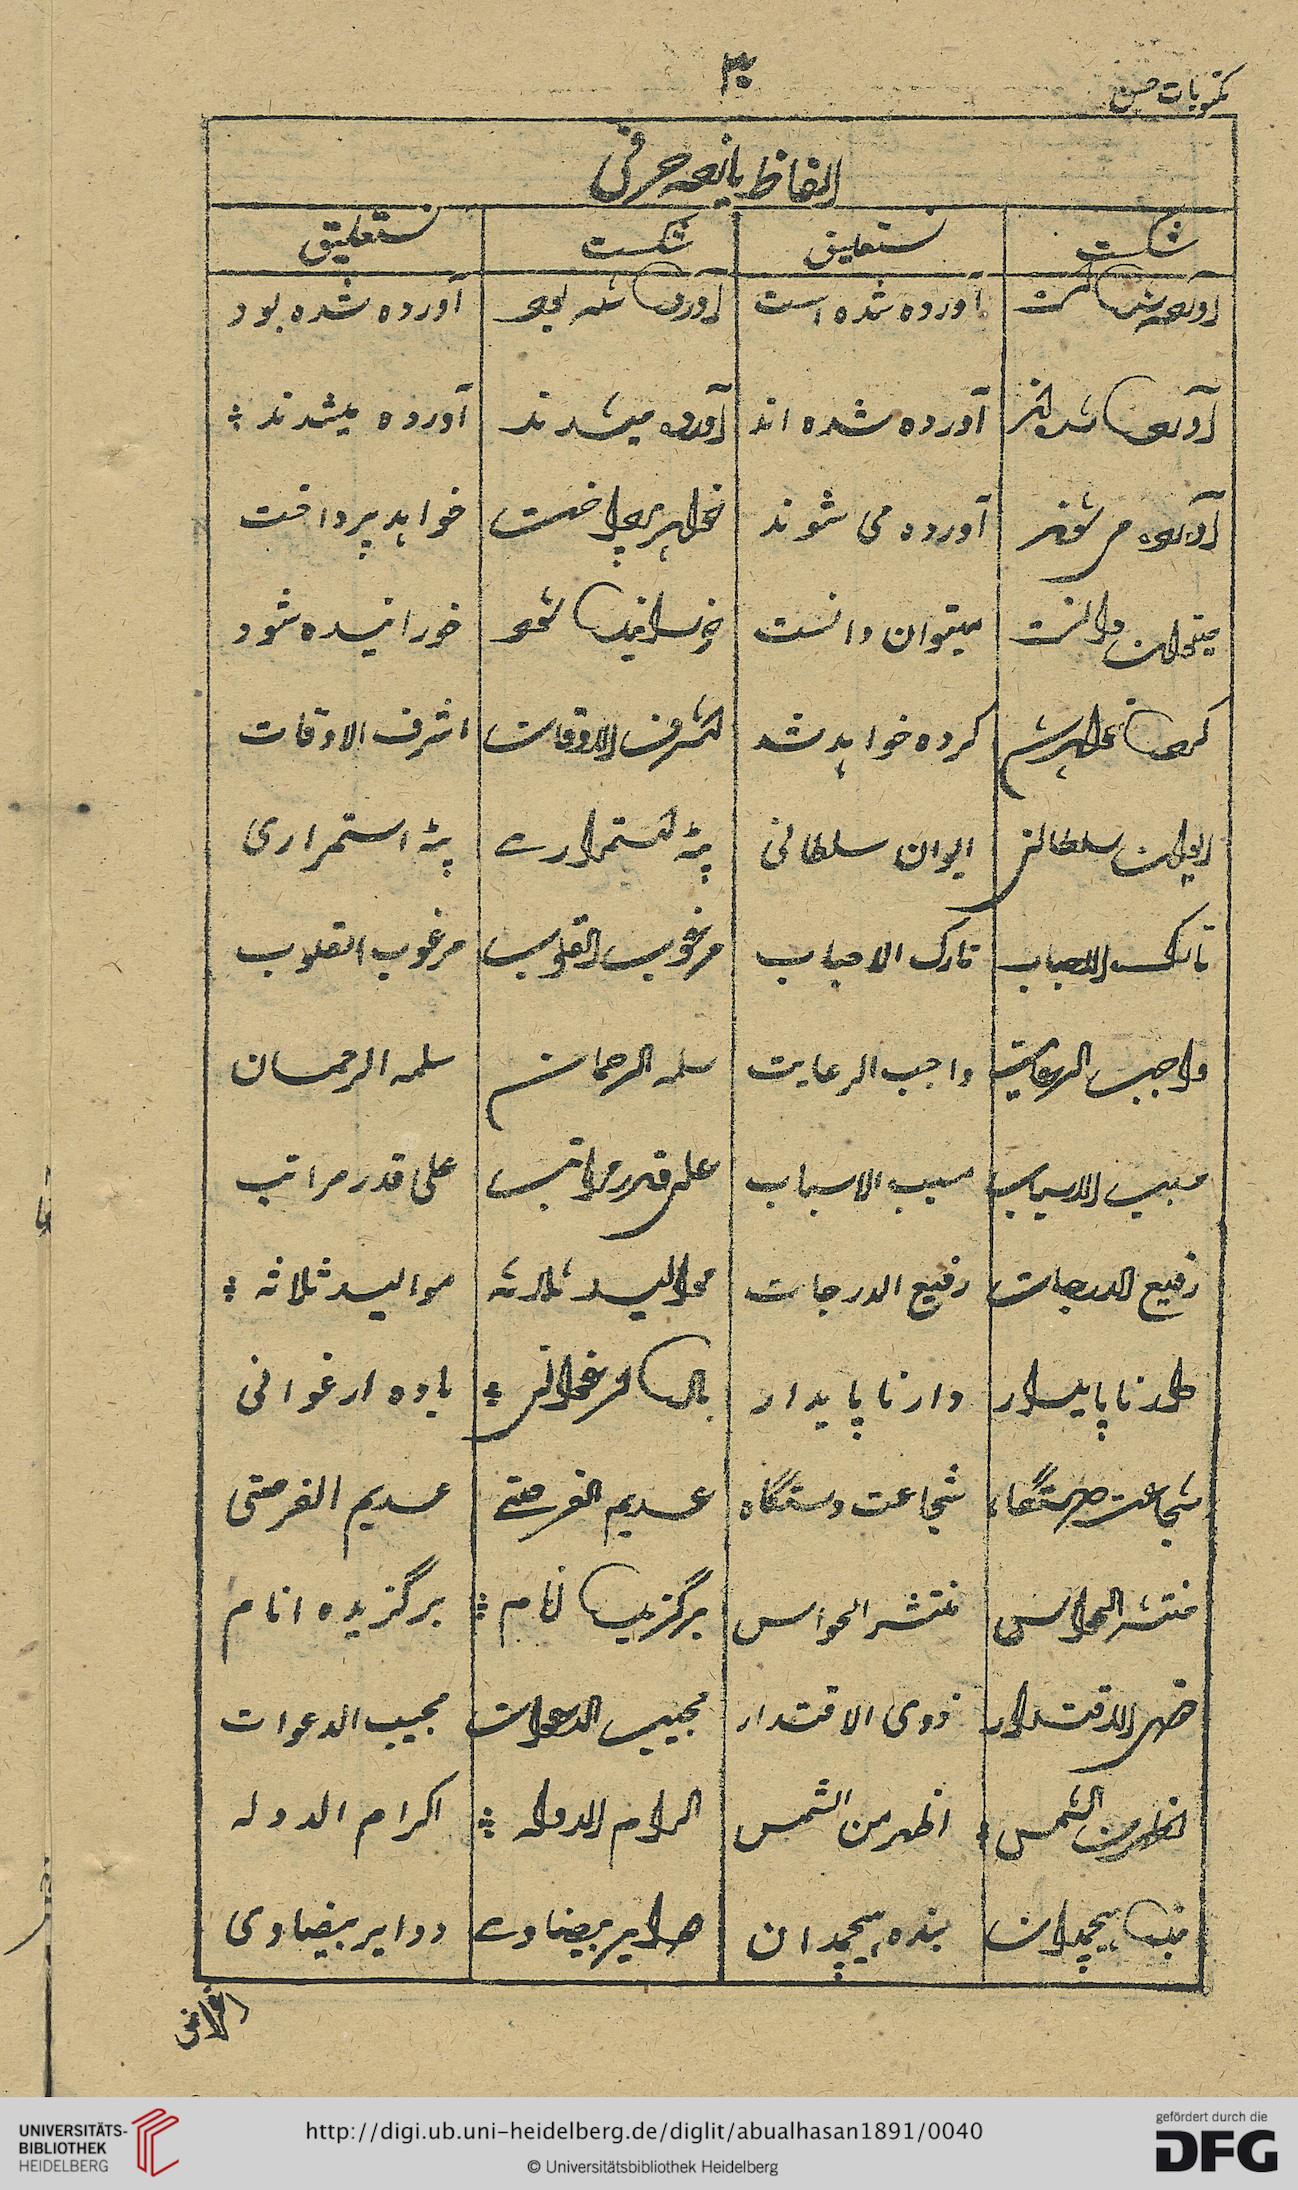 مکتوبات حسن
۳۰
الفاظ پانزده حرفی
شکست نستعلیق شکست نستعلیق
آورده شده است آورده شده است آورده شده بود آورده شده بود
آورده شده اند آورده شده اند آورده میشدند آورده میشدند
آورده می شوند آورده می شوند خواهد پرداخت خواهد پرداخت
میتوان دانست میتوان دانست خورانیده شود خورانیده شود
کرده خواهد شد کرده خواهد شد اشرف الاوقات اشرف الاوقات
ایوان سلطانی ایوان سلطانی پٹہ استمراری پٹہ استمراری
تارک الاحباب تارک الاحباب مرغوب القلوب مرغوب القلوب
واجب الرعایت واجب الرعایت سلمہ الرحمان سلمہ الرحمان
مسبب الاسباب مسبب الاسباب علی قدر مراتب علی قدر مراتب
رفیع الدرجات رفیع الدرجات موالید ثلاثہ موالید ثلاثہ
دار ناپایدار دار ناپایدار بادہ ارغوانی بادہ ارغوانی
شجاعت دستگاہ شجاعت دستگاہ عدیم الفرصتی عدیم الفرصتی
منتشر الحواس منتشر الحواس برگزیدہ انام برگزیدہ انام
ذوی الاقتدار ذوی الاقتدار مجیب الدعوات مجیب الدعوات
اظہر من الشمس اظہر من الشمس اکرام الدولہ اکرام الدولہ
بندہ ہیچمدان بندہ ہیچمدان دوایر بیضاوی دوایر بیضاوی
UNIVERSITÄTS-
BIBLIOTHEK
HEIDELBERG
http://digi.ub.uni-heidelberg.de/diglit/abualhasan1891/0040
© Universitätsbibliothek Heidelberg
gefördert durch die
DFG